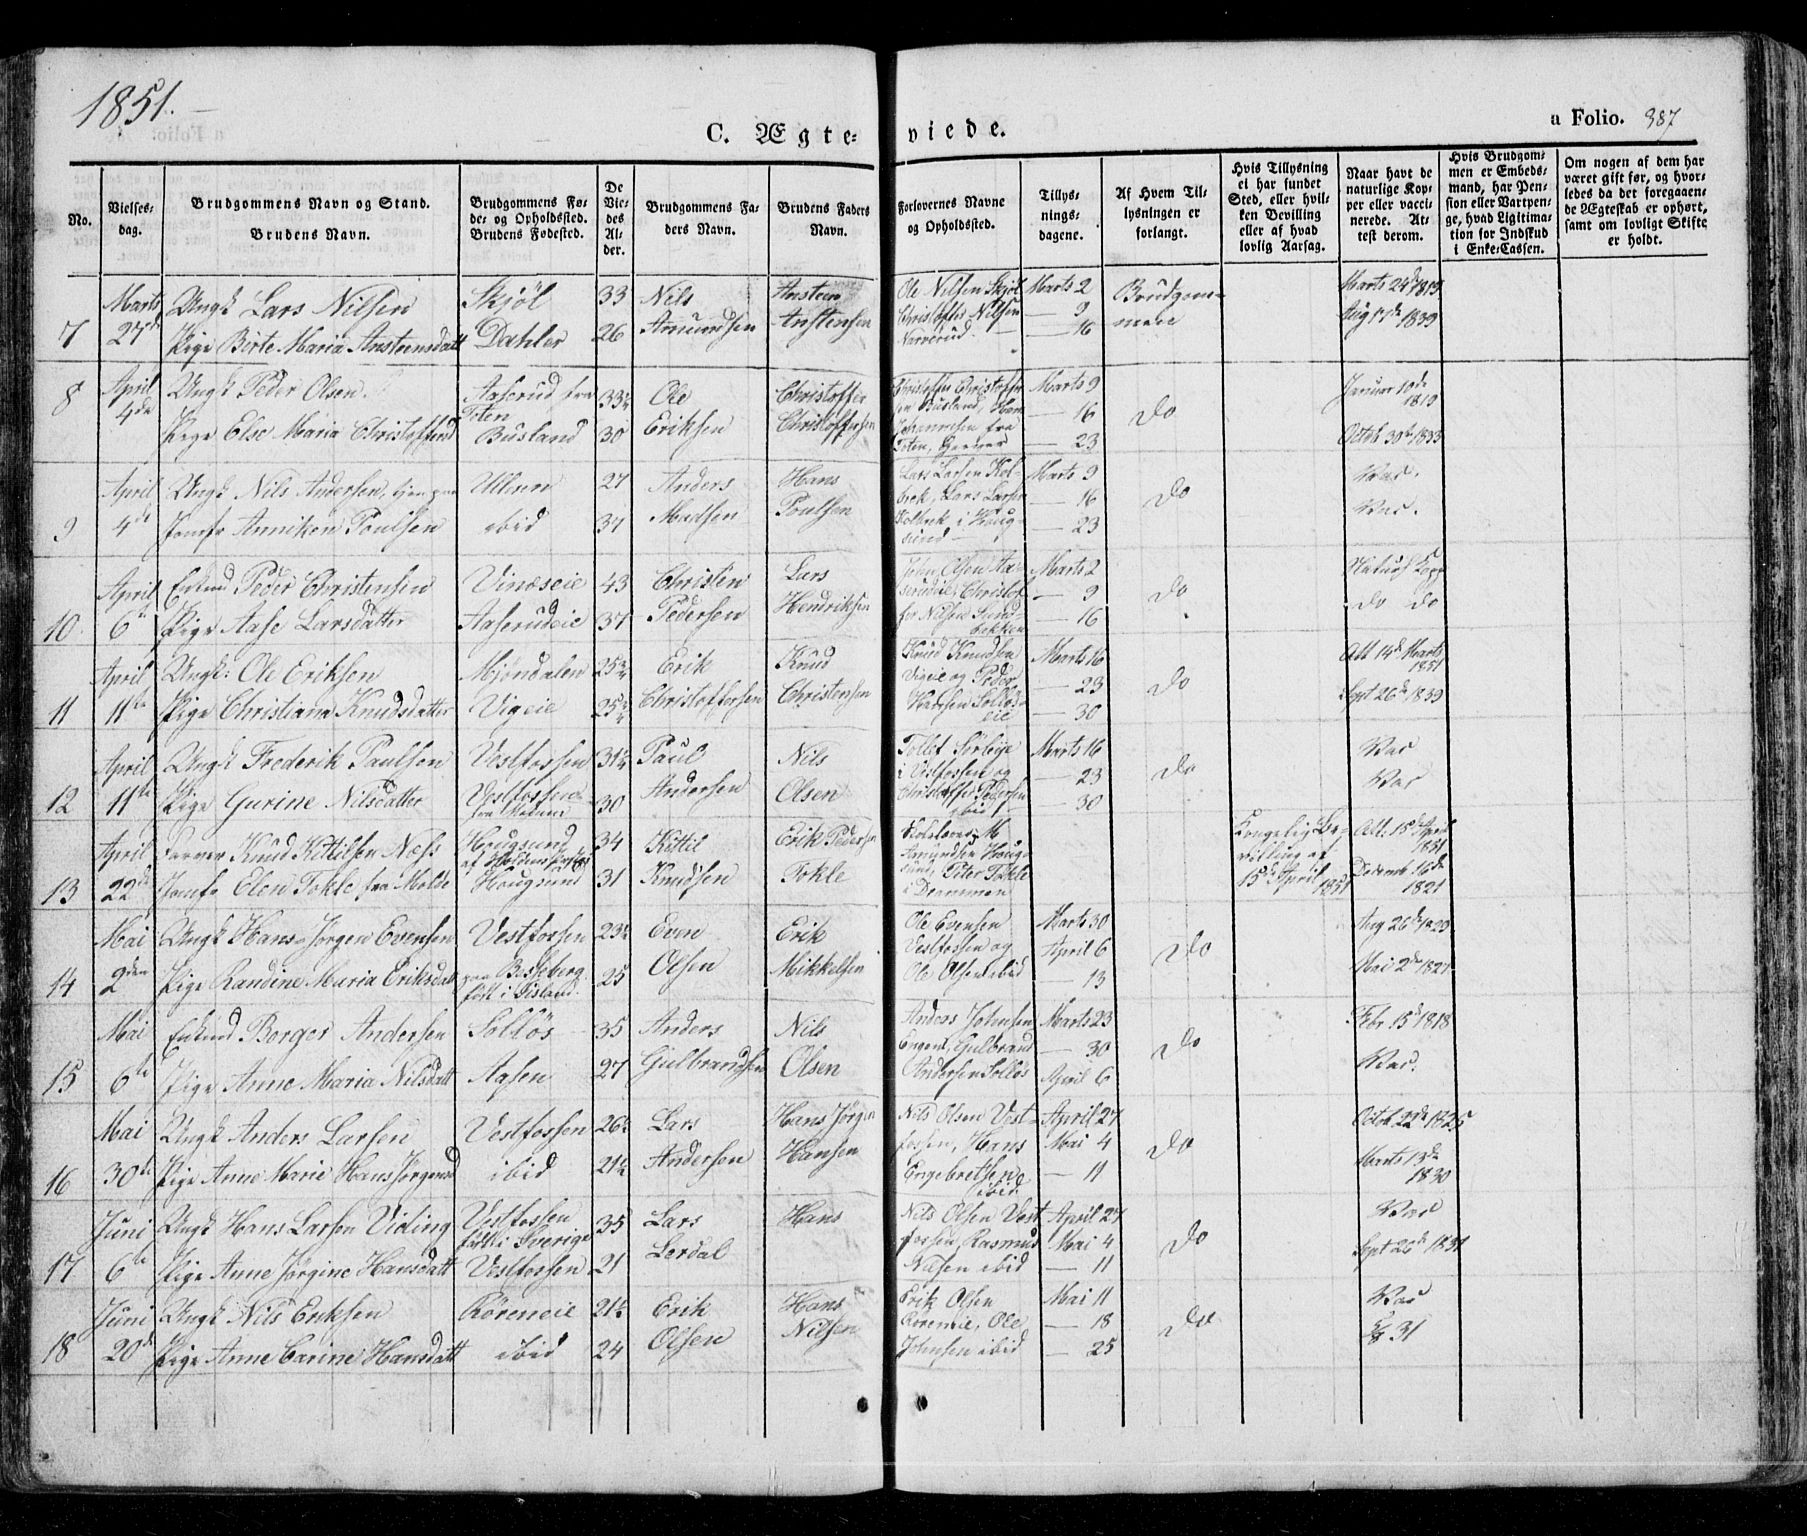 1851.
C. Ægteviede.
a Folio. 387
No.
Vielsesdag.
Brudgommens Navn og Stand.
Brudens Navn.
Brudgommens Føde- og Opholdssted.
Brudens Fødested.
De Viedes Alder.
Brudgommens Faders Navn.
Brudens Faders Navn.
Forlovernes Navne og Opholdssted.
Tillysningsdagene.
Af Hvem Tillysningen er forlangt.
Hvis Tillysning ei har fundet Sted, eller hvilken Bevilling eller af hvad lovlig Aarsag.
Naar havt de naturlige Kopper eller vaccinerede. Attest derom.
Hvis Brudgommen er Embedsmand, har Pension eller Vartpenge, hvad Ligitimation for Indskud i Enke-Cassen.
Om nogen af dem har været gift før, og hvorledes da det foregaaende Ægteskab er ophørt, samt om lovligt Skifte er holdt.
7 Marts 27de Ungk Lars Nilsen Skjöl 33 Nils Amundsen Ole Nilsen Skjöl Marts 2 Brudgommen Marts 24de 1819
Pige Birte Maria Ansteensdatt Dahler 26 Ansteen Anstensen Christoffer Nilsen Narverud 9 16 Aug 17de 1839
8 April 4de Ungk Peder Olsen. Aaserud fra Toten 33½ Ole Eriksen Christoffer Christoffersen Busland, Marts 9 do Januar 10de 1819
Pige Else Maria Christoffersd Busland 30 Christoffer Christoffersen fra Toten, 16 23 Octob 30te 1833
9 April 4de Ungk Nils Andersen, tjen paa Ullern 27 Anders Madsen Lars Larsen Kolbrek, Lars Larsen Marts 9 do Vac.
Jomfr Anniken Poulsen ibid 37 Hans Poulsen Kolbrek i Hougsund 16 23 Vac.
10 April 6te Enkem Peder Christensen Vinæseie 43 Christen Pedersen John Olsen Aaserudeie, Christoffer Marts 2 do Naturl Kopp
Pige Aase Larsdatter Aaserudeie 37 Lars Hendriksen Nilsen Sundbakken 9 16 do do
11 April 11te Ungk: Ole Eriksen Mjöndalen 25¾ Erik Christoffersen Knud Knudsen Vigeie og Peder Marts 16 do Att 14de Marts 1851
Pige Christiana Knudsdatter Vigeie 25¾ Knud Christensen Hansen Solløseie 23 30 Sept 26de 1839
12 April 11te Ungk Frederik Paulsen Vestfossen 31½ Paul Andersen Tollef Sörbye i Vestfossen og Marts 16 do Vac
Pige Gurine Nilsdatter Vestfossen fra Modum 30 Nils Olsen Christoffer Pedersen ibid 23 30 Vac
13 April 22de Farver Knud Kittilsen Næss Hougsund 34 Kittil Knudsen M Amundsen Hougsund, Peter Tokle i Drammen Kongelig Bevilling af 15de April 1851 Att: 15de April 1851
Jomfr Elen Tokle fra Molde Hougsund 31 Erik Pedersen Tokle Decemb 16de 1821
14 Mai 2den Ungk Hans Jörgen Evensen Vestfossen 23½ Even Olsen Ole Evensen Vestfossen og Marts 30 do Aug 26de 1829
Pige Randine Maria Eriksdatt paa Besseberg født i Fisland. 25 Erik Mikkelsen Ole Olsen ibid April 6 13 Mai 2de 1827
15 Mai 6te Enkem Borger Andersen Solløs 35 Anders Gulbrandsen Andreas Johnsen Engen, Gulbrand Marts 23 do Febr 15de 1818
Pige Anne Maria Nilsdatt Aasen 27 Nils Olsen Andersen Solløs 30 April 6 Vac.
16 Mai 30te Ungk Anders Larsen Vestfossen 26½ Lars Andersen Nils Olsen Vestfossen, Hans April 27 do Octob 22de 1825
Pige Anne Marie Hans Jörgensd ibid 21½ Hans Jörgen Hansen Engebretsen ibid Mai 4 11 Marts 13de 1830
17 Juni 6te Ungk Hans Larsen Viding Vestfossen født i Sverige 35 Lars Lerdal Nils Olsen Vestfossen, Rasmus April 27 do Vac
Pige Anne Jörgine Hansdatt Vestfossen 21 Hans Næsen ibid Mai 4 11 Sept 26de 1831
18 Juni 20de Ungk Nils Eriksen Röreneie 21½ Erik Olsen Erik Olsen Röreneie, Ole Mai 11 do Vac
Pige Anne Carine Hansdatt ibid 24 Hans Nilsen Johnsen ibid 18 25 31